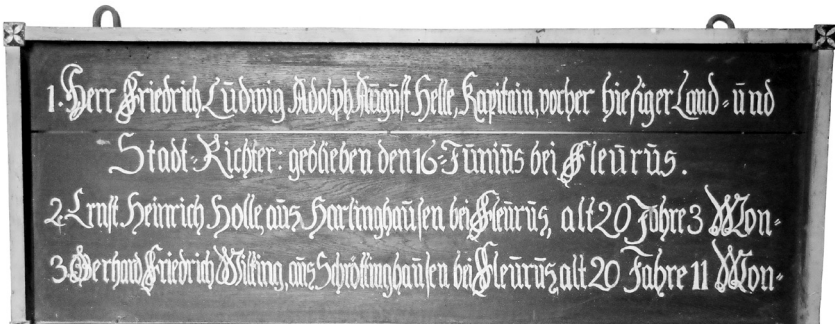 1. Herr Friedrich Ludwig Adolph August Helle, Kapitain, vorher hiesiger Land- und
Stadt-Richter: geblieben den 16- Junius bei Fleurus.
2. Ernst Heinrich Holle, aus Hartinghausen bei Fleurus, alt 20 Jahre 3 Mon-
3. Gerhard Friedrich Wilking, aus Schröttinghausen bei Fleurus, alt 20 Jahre 11 Mon-